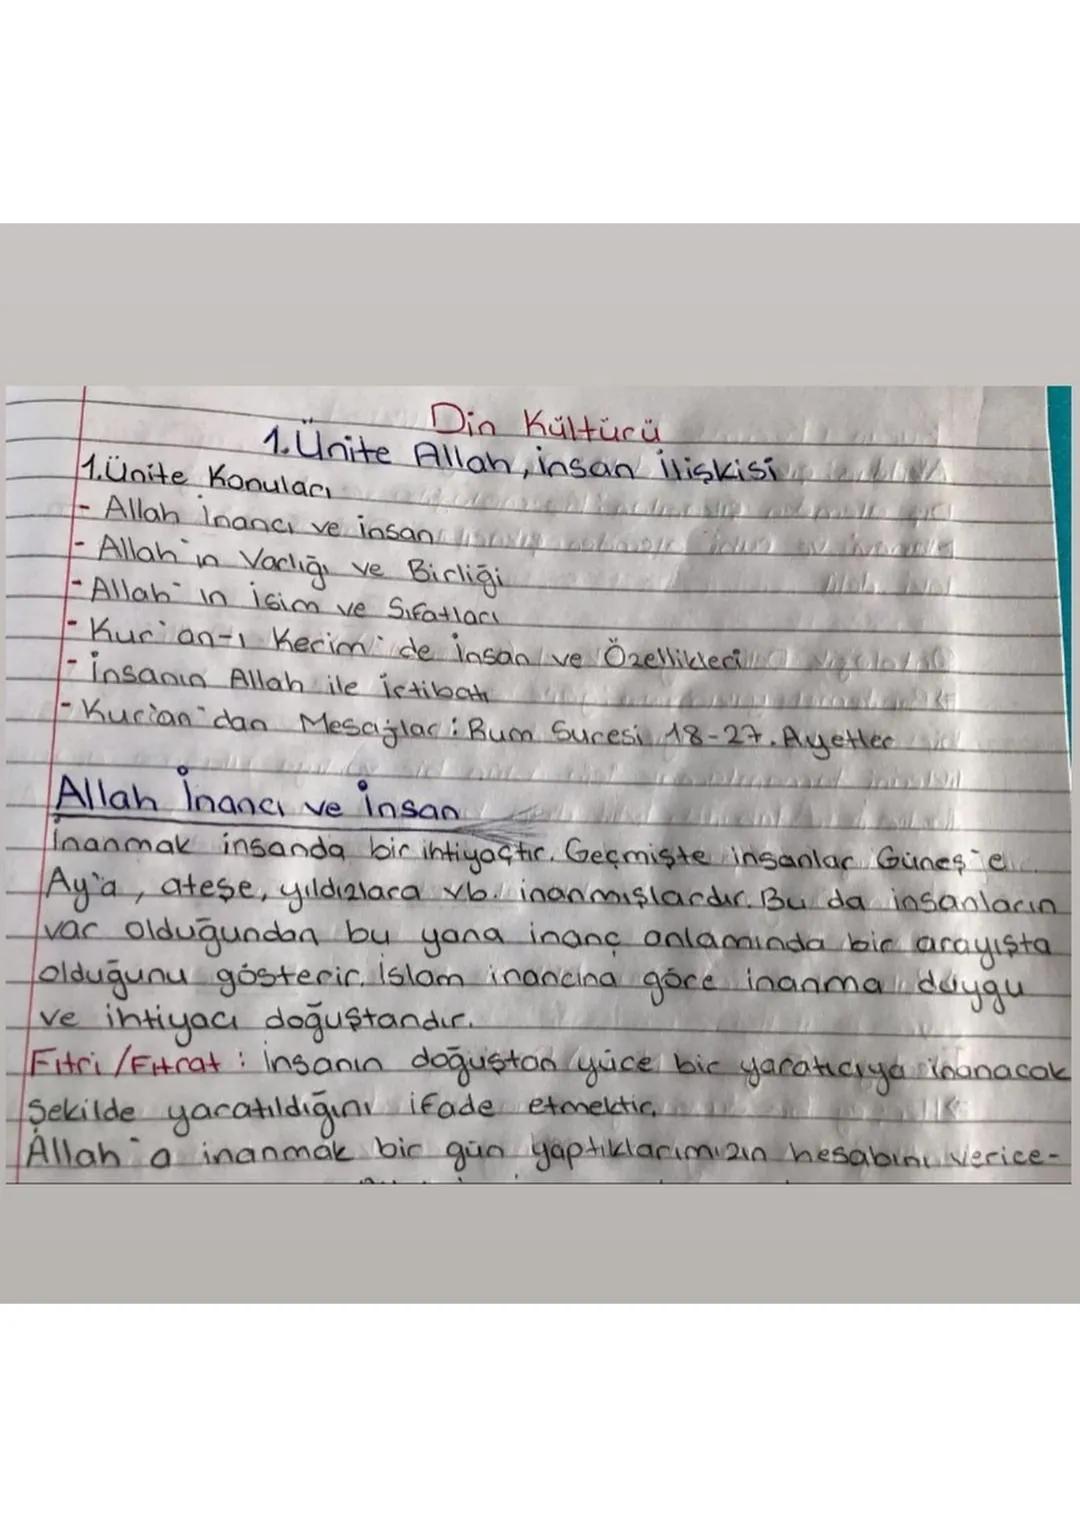 Din Kültürü
1.Ünite Allah, insan İlişkisi
1.Ünite Konuları
- Allah İnancı ve İnsan
- Allah'ın Varlığı ve Birliği
- Allah'ın İsim ve Sıfatları
- Kur'an-ı Kerim'de İnsan ve Özellikleri
- İnsanın Allah ile İrtibatı
- Kur'an'dan Mesajlar: Rum Suresi 18-27. Ayetler
Allah İnancı ve İnsan
İnanmak insanda bir ihtiyaçtır. Geçmişte insanlar Güneş'e
Ay'a, ateşe, yıldızlara vb. inanmışlardır. Bu da insanların
var olduğundan bu yana inanç anlamında bir arayışta
olduğunu gösterir. İslam inancına göre inanma duygu
ve ihtiyacı doğuştandır.
Fıtri/Fıtrat: İnsanın doğuştan yüce bir yaratıcıya inanacak
Şekilde yaratıldığını ifade etmektir.
Allah'a inanmak bir gün yaptıklarımızın hesabını verice-